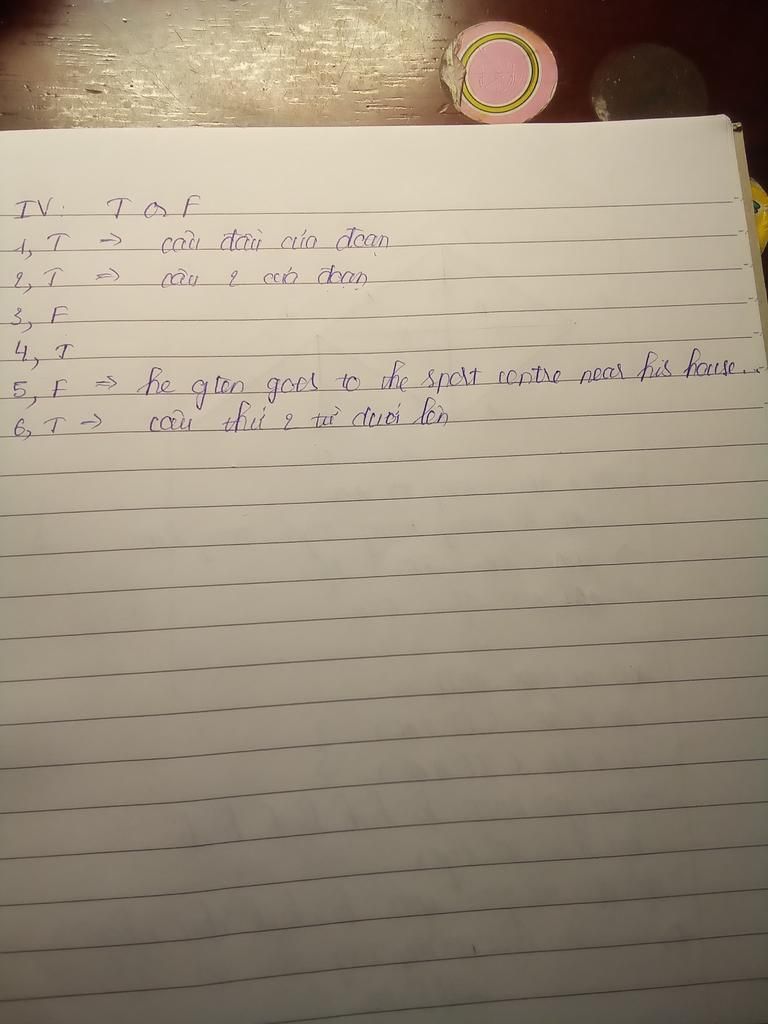 IV: T or F
1, T => câu đầu của đoạn
2, T => câu 2 của đoạn
3, F
4, T
5, F => he often goes to the sport centre near his house...
6, T => câu thứ 2 từ dưới lên